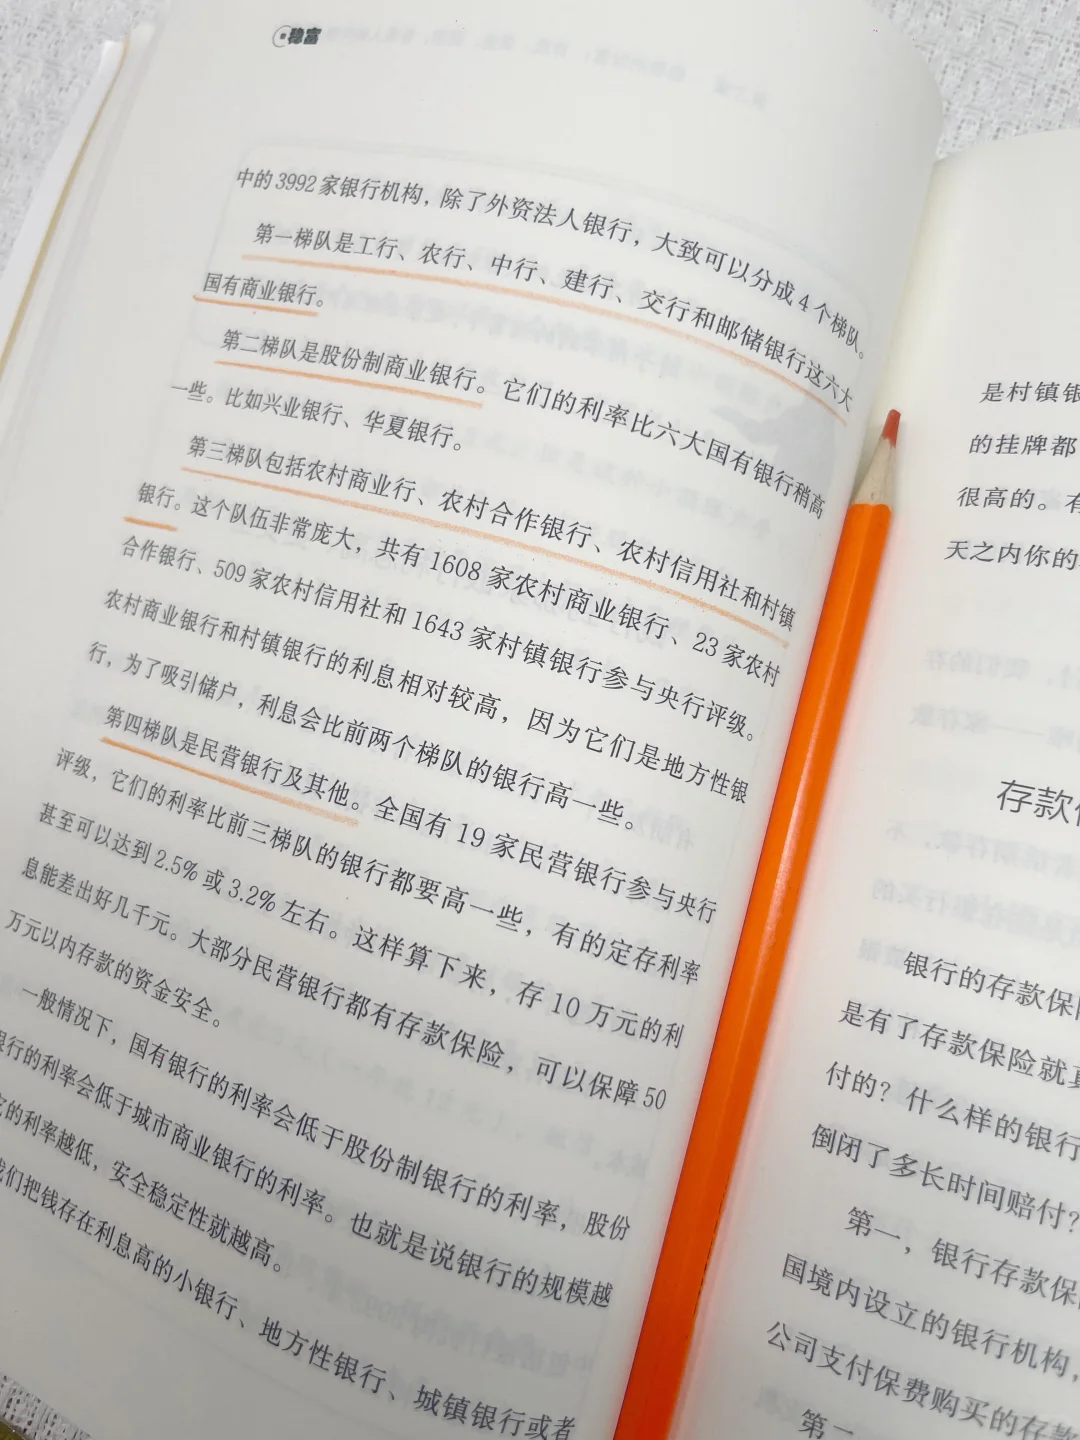 稳富
中的3992家银行机构，除了外资法人银行，大致可以分成4个梯队。
第一梯队是工行、农行、中行、建行、交行和邮储银行这六大
国有商业银行。
第二梯队是股份制商业银行。它们的利率比六大国有银行稍高
一些。比如兴业银行、华夏银行。
第三梯队包括农村商业行、农村合作银行、农村信用社和村镇
银行。这个队伍非常庞大，共有1608家农村商业银行、23家农村
合作银行、509家农村信用社和1643家村镇银行参与央行评级。
农村商业银行和村镇银行的利息相对较高，因为它们是地方性银
行，为了吸引储户，利息会比前两个梯队的银行高一些。
第四梯队是民营银行及其他。全国有19家民营银行参与央行
评级，它们的利率比前三梯队的银行都要高一些，有的定存利率
甚至可以达到2.5%或3.2%左右。这样算下来，存10万元的利
息能差出好几千元。大部分民营银行都有存款保险，可以保障50
万元以内存款的资金安全。
一般情况下，国有银行的利率会低于股份制银行的利率，股份
银行的利率会低于城市商业银行的利率。也就是说银行的规模越
的利率越低，安全稳定性就越高。
我们把钱存在利息高的小银行、地方性银行、城镇银行或者
是村镇银
的挂牌都
很高的。有
天之内你的
存款
银行的存款保
是有了存款保险就真
付的？什么样的银行
倒闭了多长时间赔付？
第一，银行存款保
国境内设立的银行机构，
公司支付保费购买的存款
第